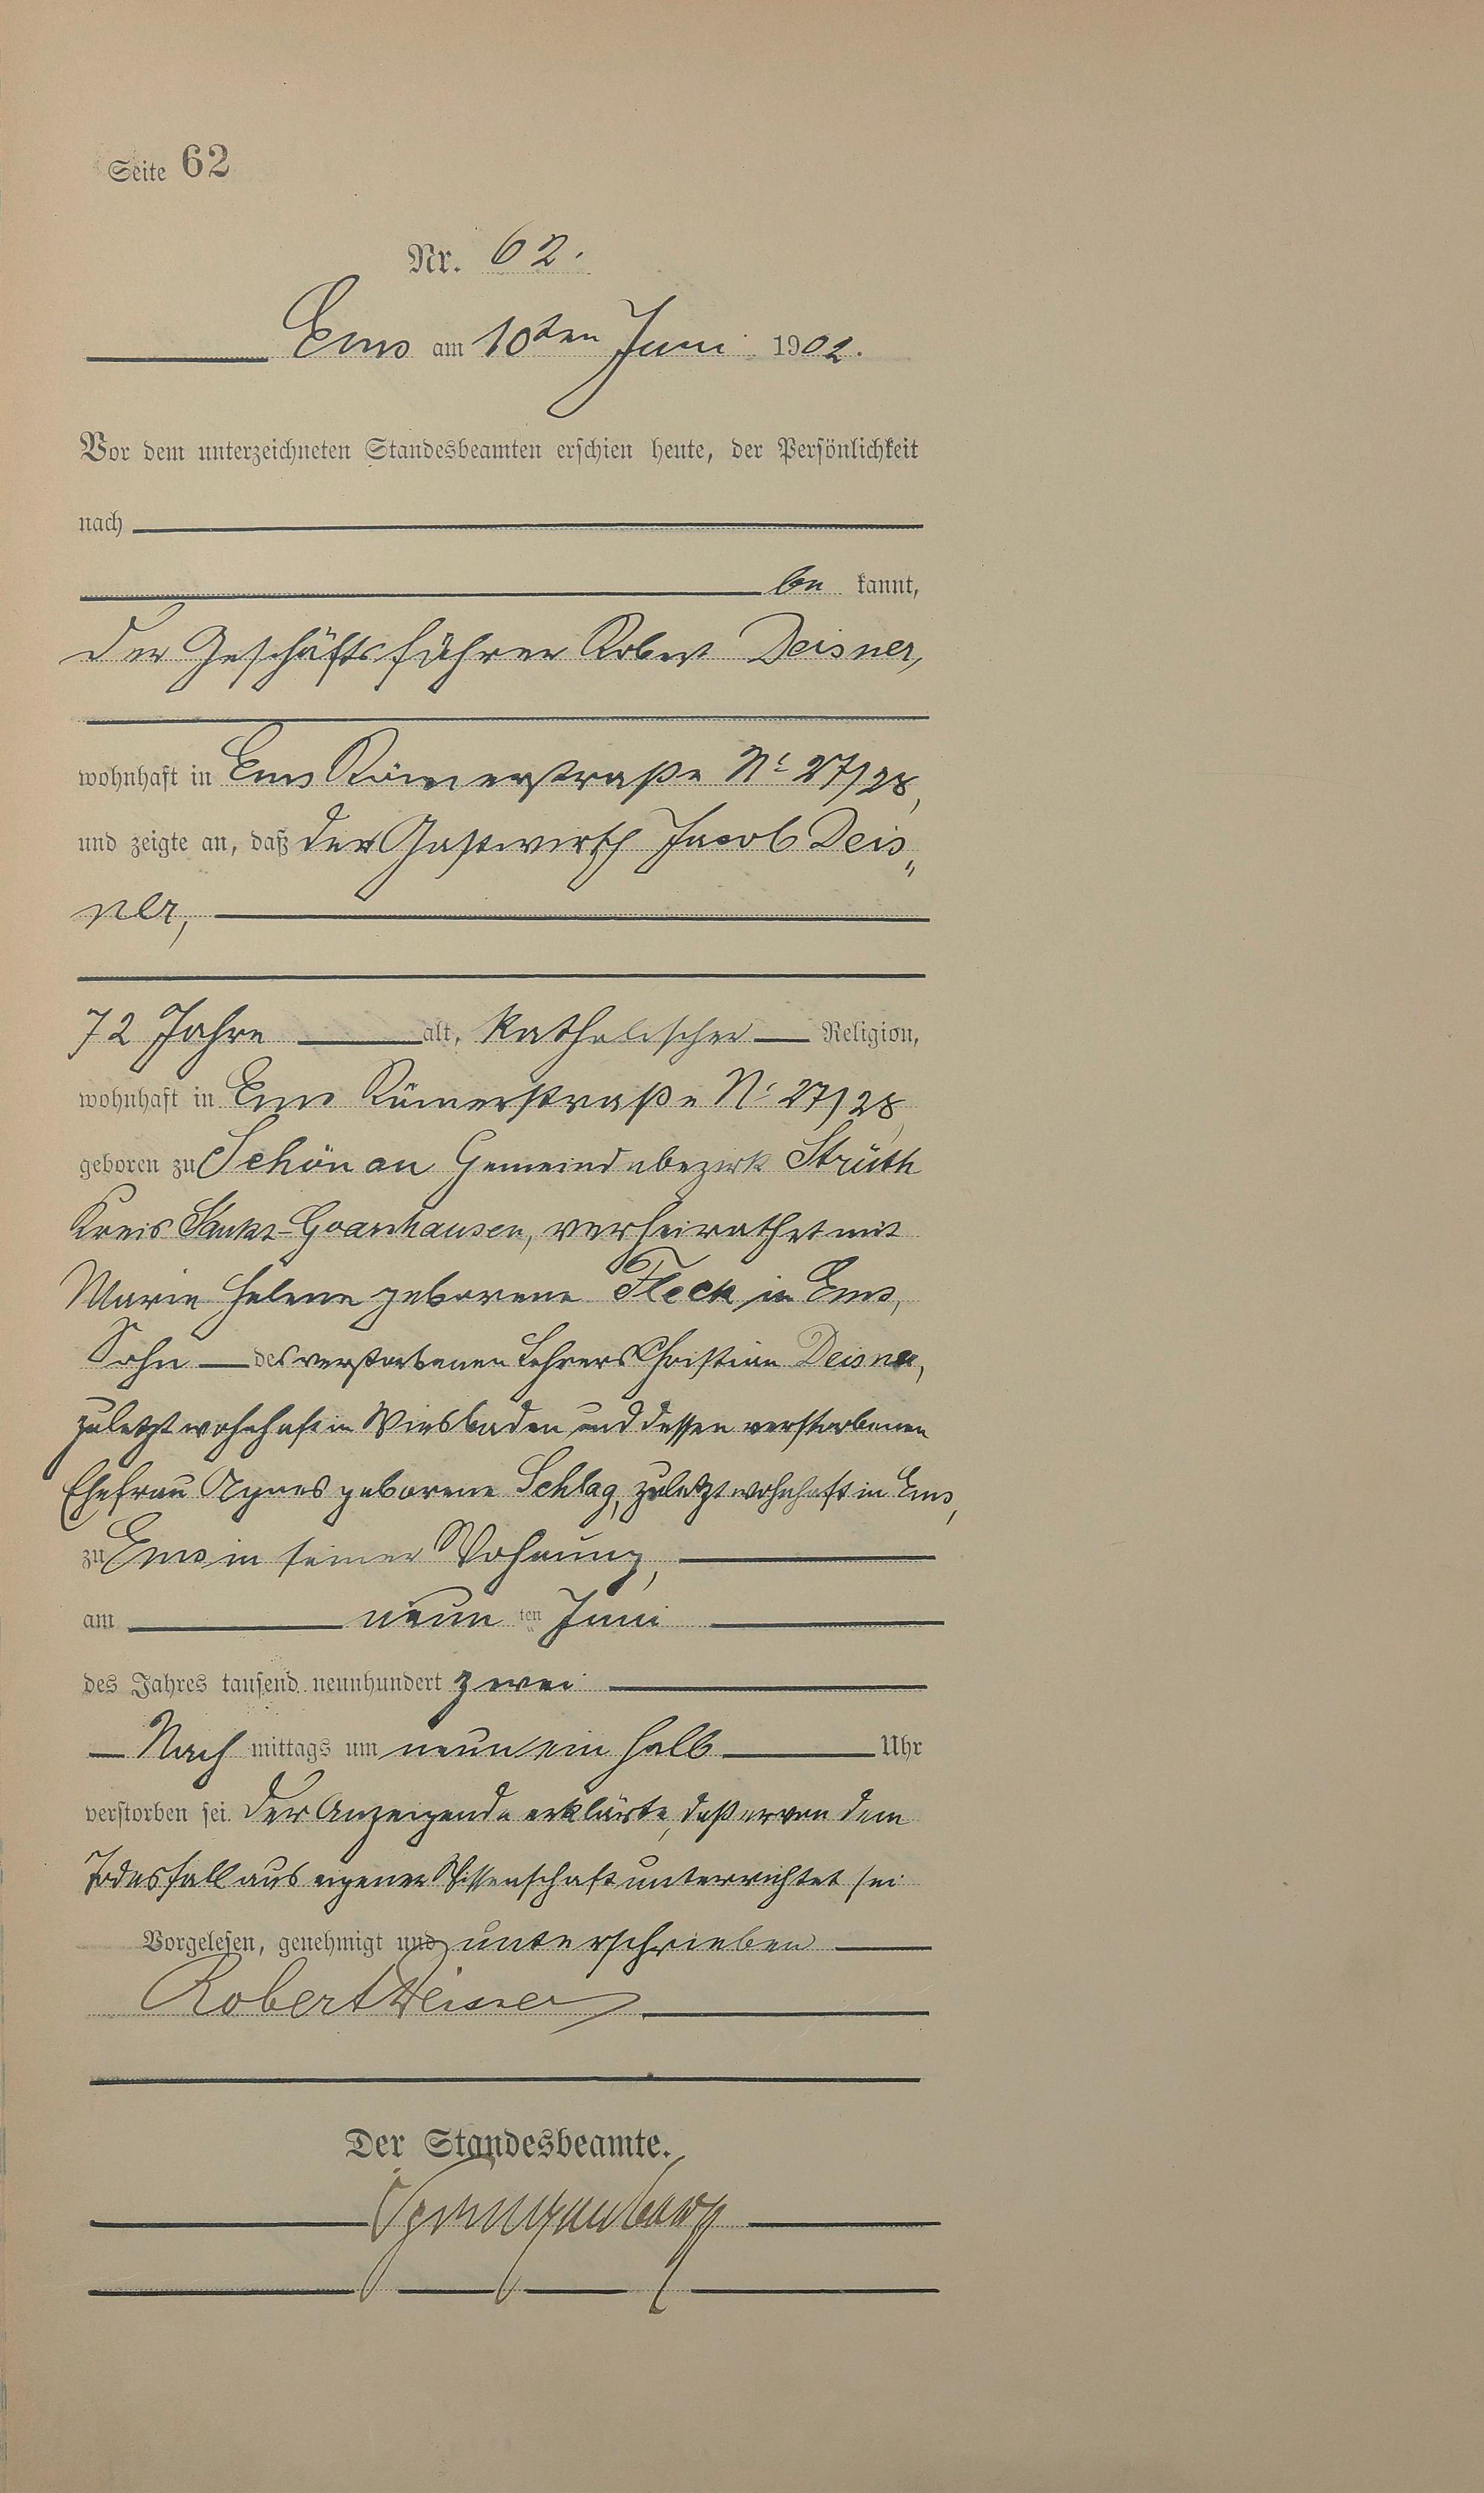 Seite 62
Nr. 62.
Ems am 10ten Juni 1902.
Vor dem unterzeichneten Standesbeamten erschien heute, der Persönlichkeit
nach
be kannt,
der Geschäftsführer Robert Deisner,
wohnhaft in Ems Römerstraße No 27/28,
und zeigte an, daß der Gastwirth Jacob Deis„
ner,
72 Jahre alt, katholischer Religion,
wohnhaft in Ems Römerstraße No 27/28,
geboren zu Schönau Gemeindebezirk Strüth
Kreis Sankt-Goarshausen, verheirathet mit
Marie Helene geborene Fleck in Ems,
Sohn des verstorbenen Lehrers Christian Deisner,
zuletzt wohnhaft in Wiesbaden und dessen verstorbenen
Ehefrau Agnes geborene Schlag, zuletzt wohnhaft in Ems,
zu Ems in seiner Wohnung,
am neun ten Juni
des Jahres tausend neunhundert zwei
Nach mittags um neun ein halb Uhr
verstorben sei. Der Anzeigende erklärte, daß er von dem
Todesfall aus eigener Wissenschaft unterrichtet sei
Vorgelesen, genehmigt und unterschrieben
Robert Deisner
Der Standesbeamte.